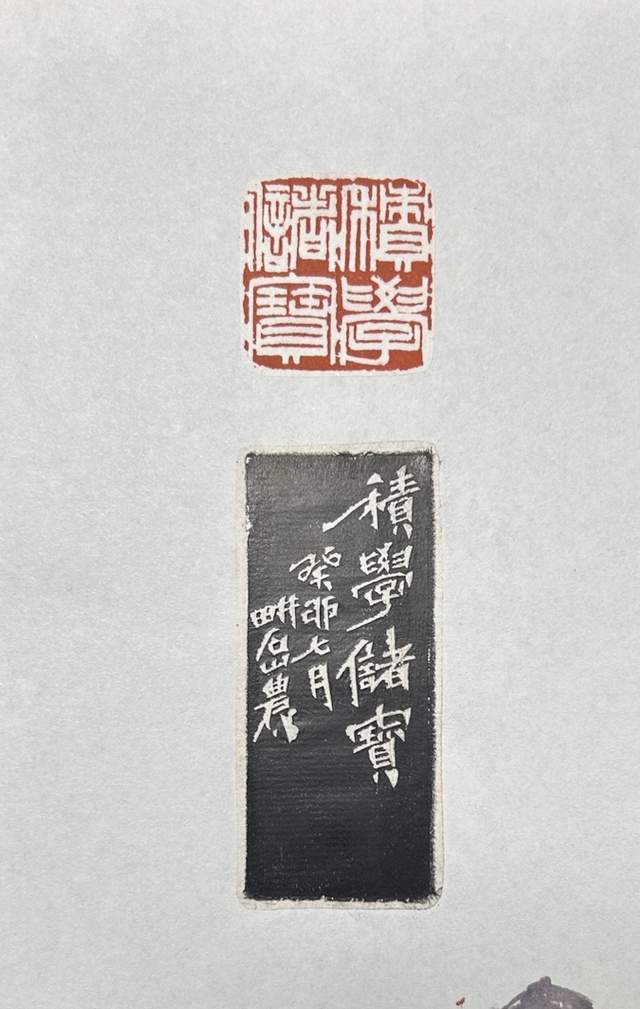 積學
儲寶
積學儲寶
癸卯七月
畊農